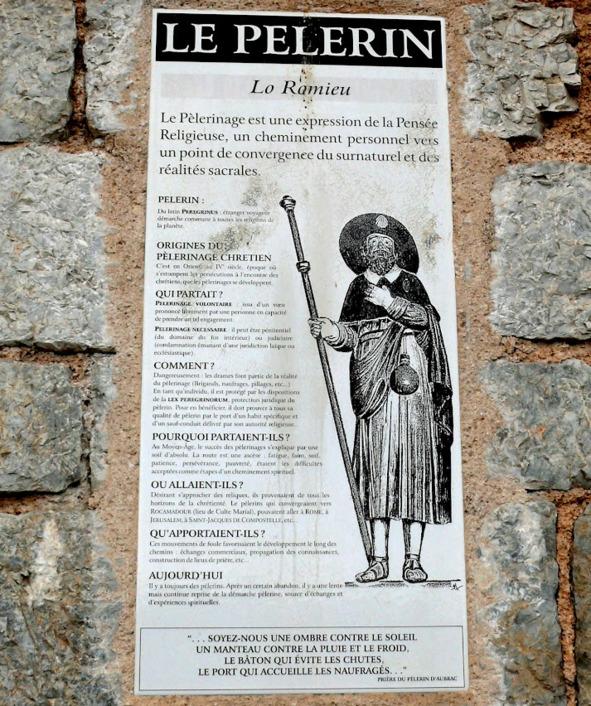 LE PELERIN
Lo Romieu
Le Pèlerinage est une expression de la Pensée
Religieuse, un cheminement personnel vers
un point de convergence du surnaturel et des
réalités sacrales.
PELERIN :
Du latin PEREGRINUS : étranger voyageur
démarche commune à toutes les religions de
la planète.
ORIGINES DU
PÈLERINAGE CHRETIEN
C'est en Orient, au IVº siècle, époque où
s'estompent les persécutions à l'encontre des
chrétiens, que les pèlerinages se développent.
QUI PARTAIT ?
PELERINAGE VOLONTAIRE : issu d'un vœu
prononcé librement par une personne en capacité
de prendre un tel engagement.
PELERINAGE NECESSAIRE : il peut être pénitentiel
(du domaine du for intérieur) ou judiciaire
(condamnation émanant d'une juridiction laïque ou
ecclésiastique).
COMMENT ?
Dangereusement : les drames font partie de la réalité
du pèlerinage (Brigands, naufrages, pillages, etc...)
En tant qu'individu, il est protégé par les dispositions
de la LEX PEREGRINORUM, protection juridique du
pèlerin. Pour en bénéficier, il doit prouver à tous sa
qualité de pèlerin par le port d'un habit spécifique et
d'un sauf-conduit délivré par son autorité religieuse.
POURQUOI PARTAIENT-ILS ?
Au Moyen-Age, le succès des pèlerinages s'explique par une
soif d'absolu. La route est une ascèse : fatigue, faim, soif,
patience, persévérance, pauvreté, étaient les difficultés
acceptées comme étapes d'un cheminement spirituel.
OU ALLAIENT-ILS ?
Désirant s'approcher des reliques, ils provenaient de tous les
horizons de la chrétienté. Le pèlerins qui convergeaient vers
ROCAMADOUR (lieu de Culte Marial), pouvaient aller à ROME, à
JERUSALEM, à SAINT-JACQUES DE COMPOSTELLE, etc.
QU'APPORTAIENT-ILS ?
Ces mouvements de foule favorisaient le développement le long des
chemins : échanges commerciaux, propagation des connaissances,
construction de lieux de prière, etc...
AUJOURD'HUI
Il y a toujours des pèlerins. Après un certain abandon, il y a une lente
mais continue reprise de la démarche pèlerine, source d'échanges et
d'expériences spirituelles.
"... SOYEZ-NOUS UNE OMBRE CONTRE LE SOLEIL
UN MANTEAU CONTRE LA PLUIE ET LE FROID,
LE BÂTON QUI ÉVITE LES CHUTES,
LE PORT QUI ACCUEILLE LES NAUFRAGÉS..."
PRIÈRE DU PÈLERIN D'AUBRAC